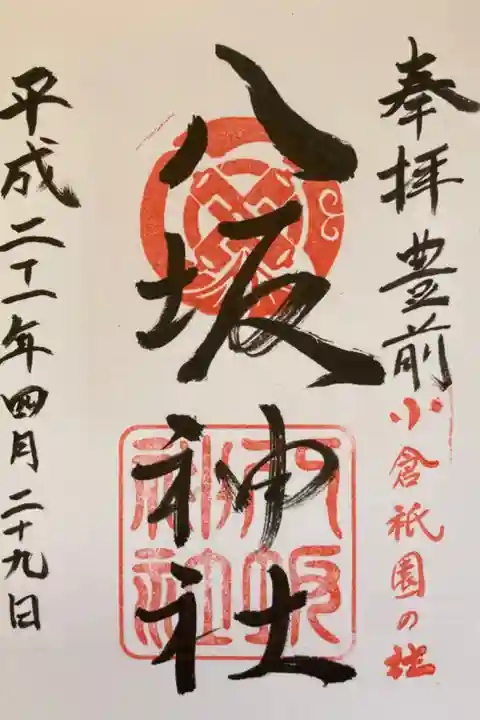 奉拝 豊前 小倉祇園の
八坂神社
八坂
神社
平成二十一年四月二十九日